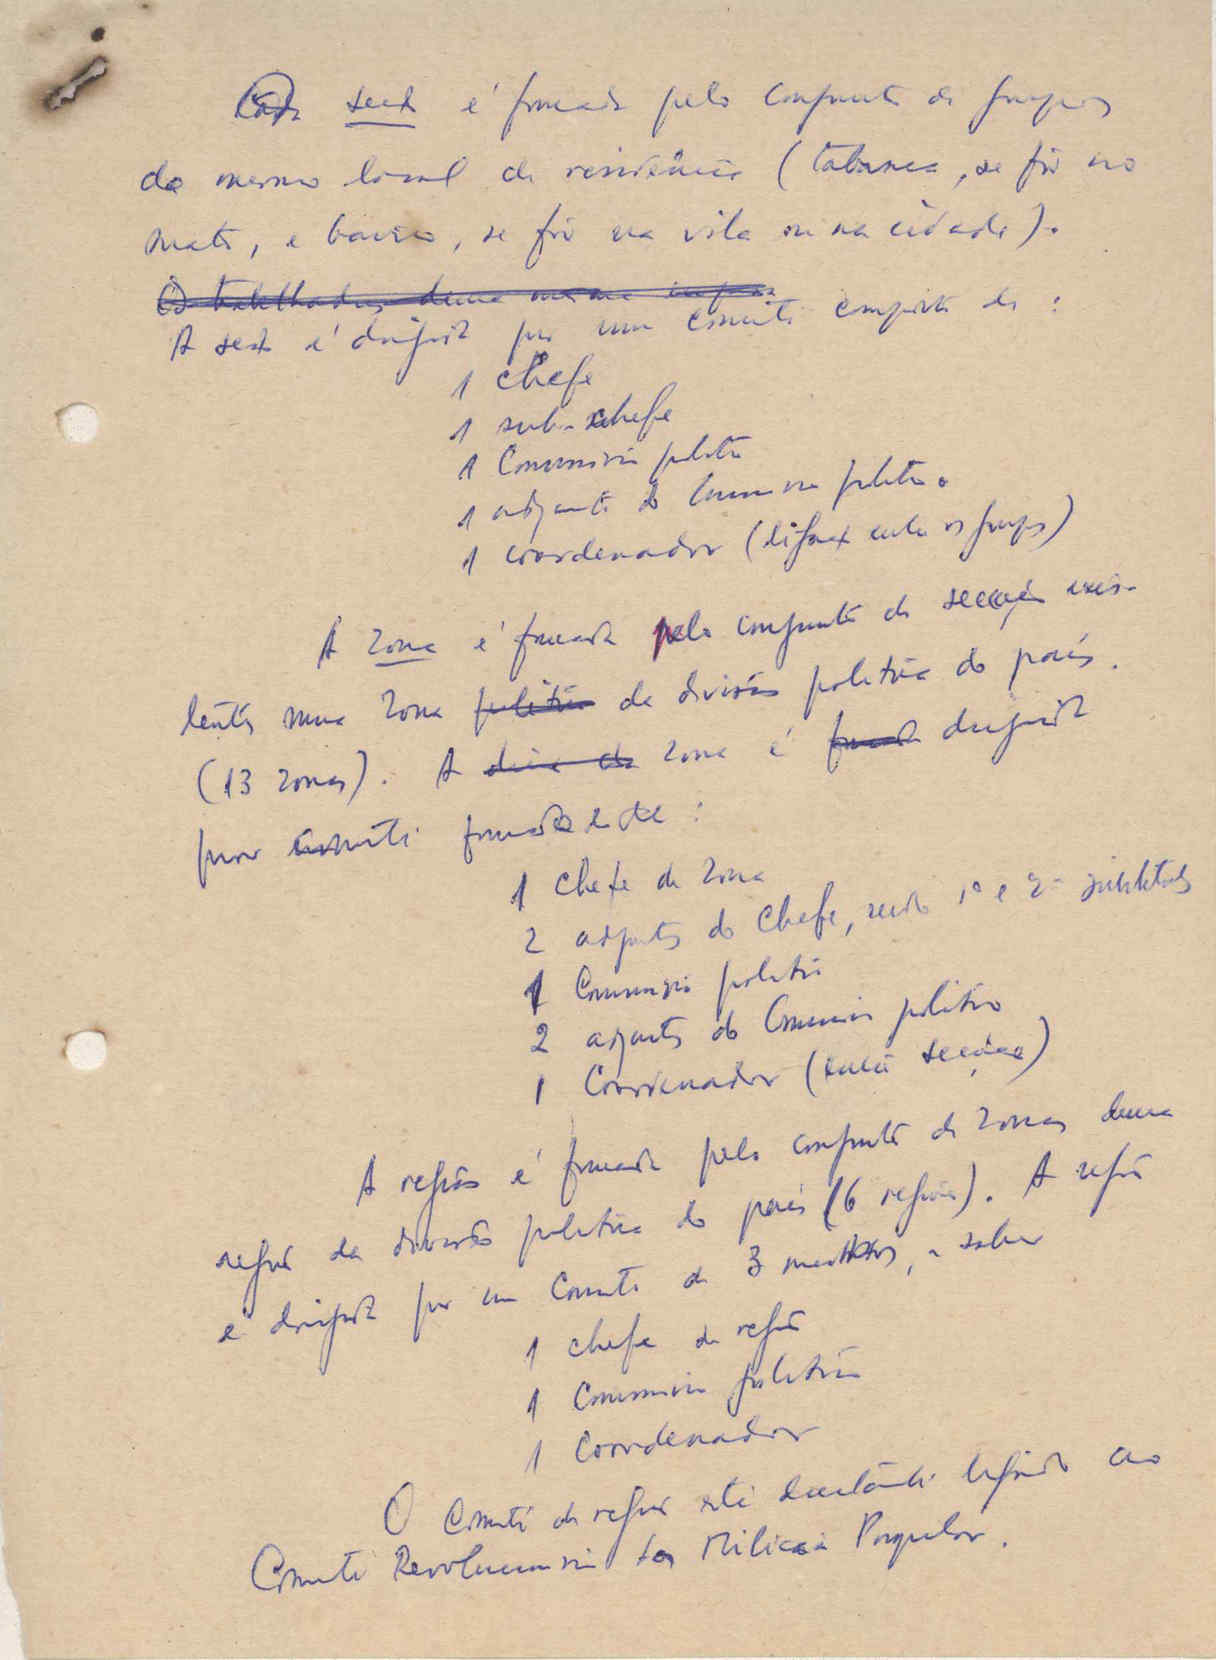 Cada secç é formada pelo conjunto de grupos
do mesmo local de residência (tabanca, se fôr no
mato, e bairro, se fôr na vila ou na cidade).
Os trabalhadores duma mesma
A secç é dirigida por um comité composto de :
1 chefe
1 sub-chefe
1 Comissário político
1 adjunto do Comissário político
1 coordenador (ligaç entre os grupos)
A zona é formada pelo conjunto de secções exis-
tentes numa zona política da divisão política do país.
(13 zonas). A zona é formada dirigida
por comité formado de :
1 Chefe de zona
2 adjuntos do Chefe, sendo 1º e 2º substitutos
1 Comissário político
2 adjuntos do Comissário político
1 Coordenador (entre secções)
A região é formada pelo conjunto de zonas duma
região da divisão política do país (6 regiões). A região
é dirigida por um Comité de 3 membros, a saber
1 chefe de região
1 Comissário político
1 Coordenador
O Comité de região está ligado ao
Comité Revolucionário da Milícia Popular.